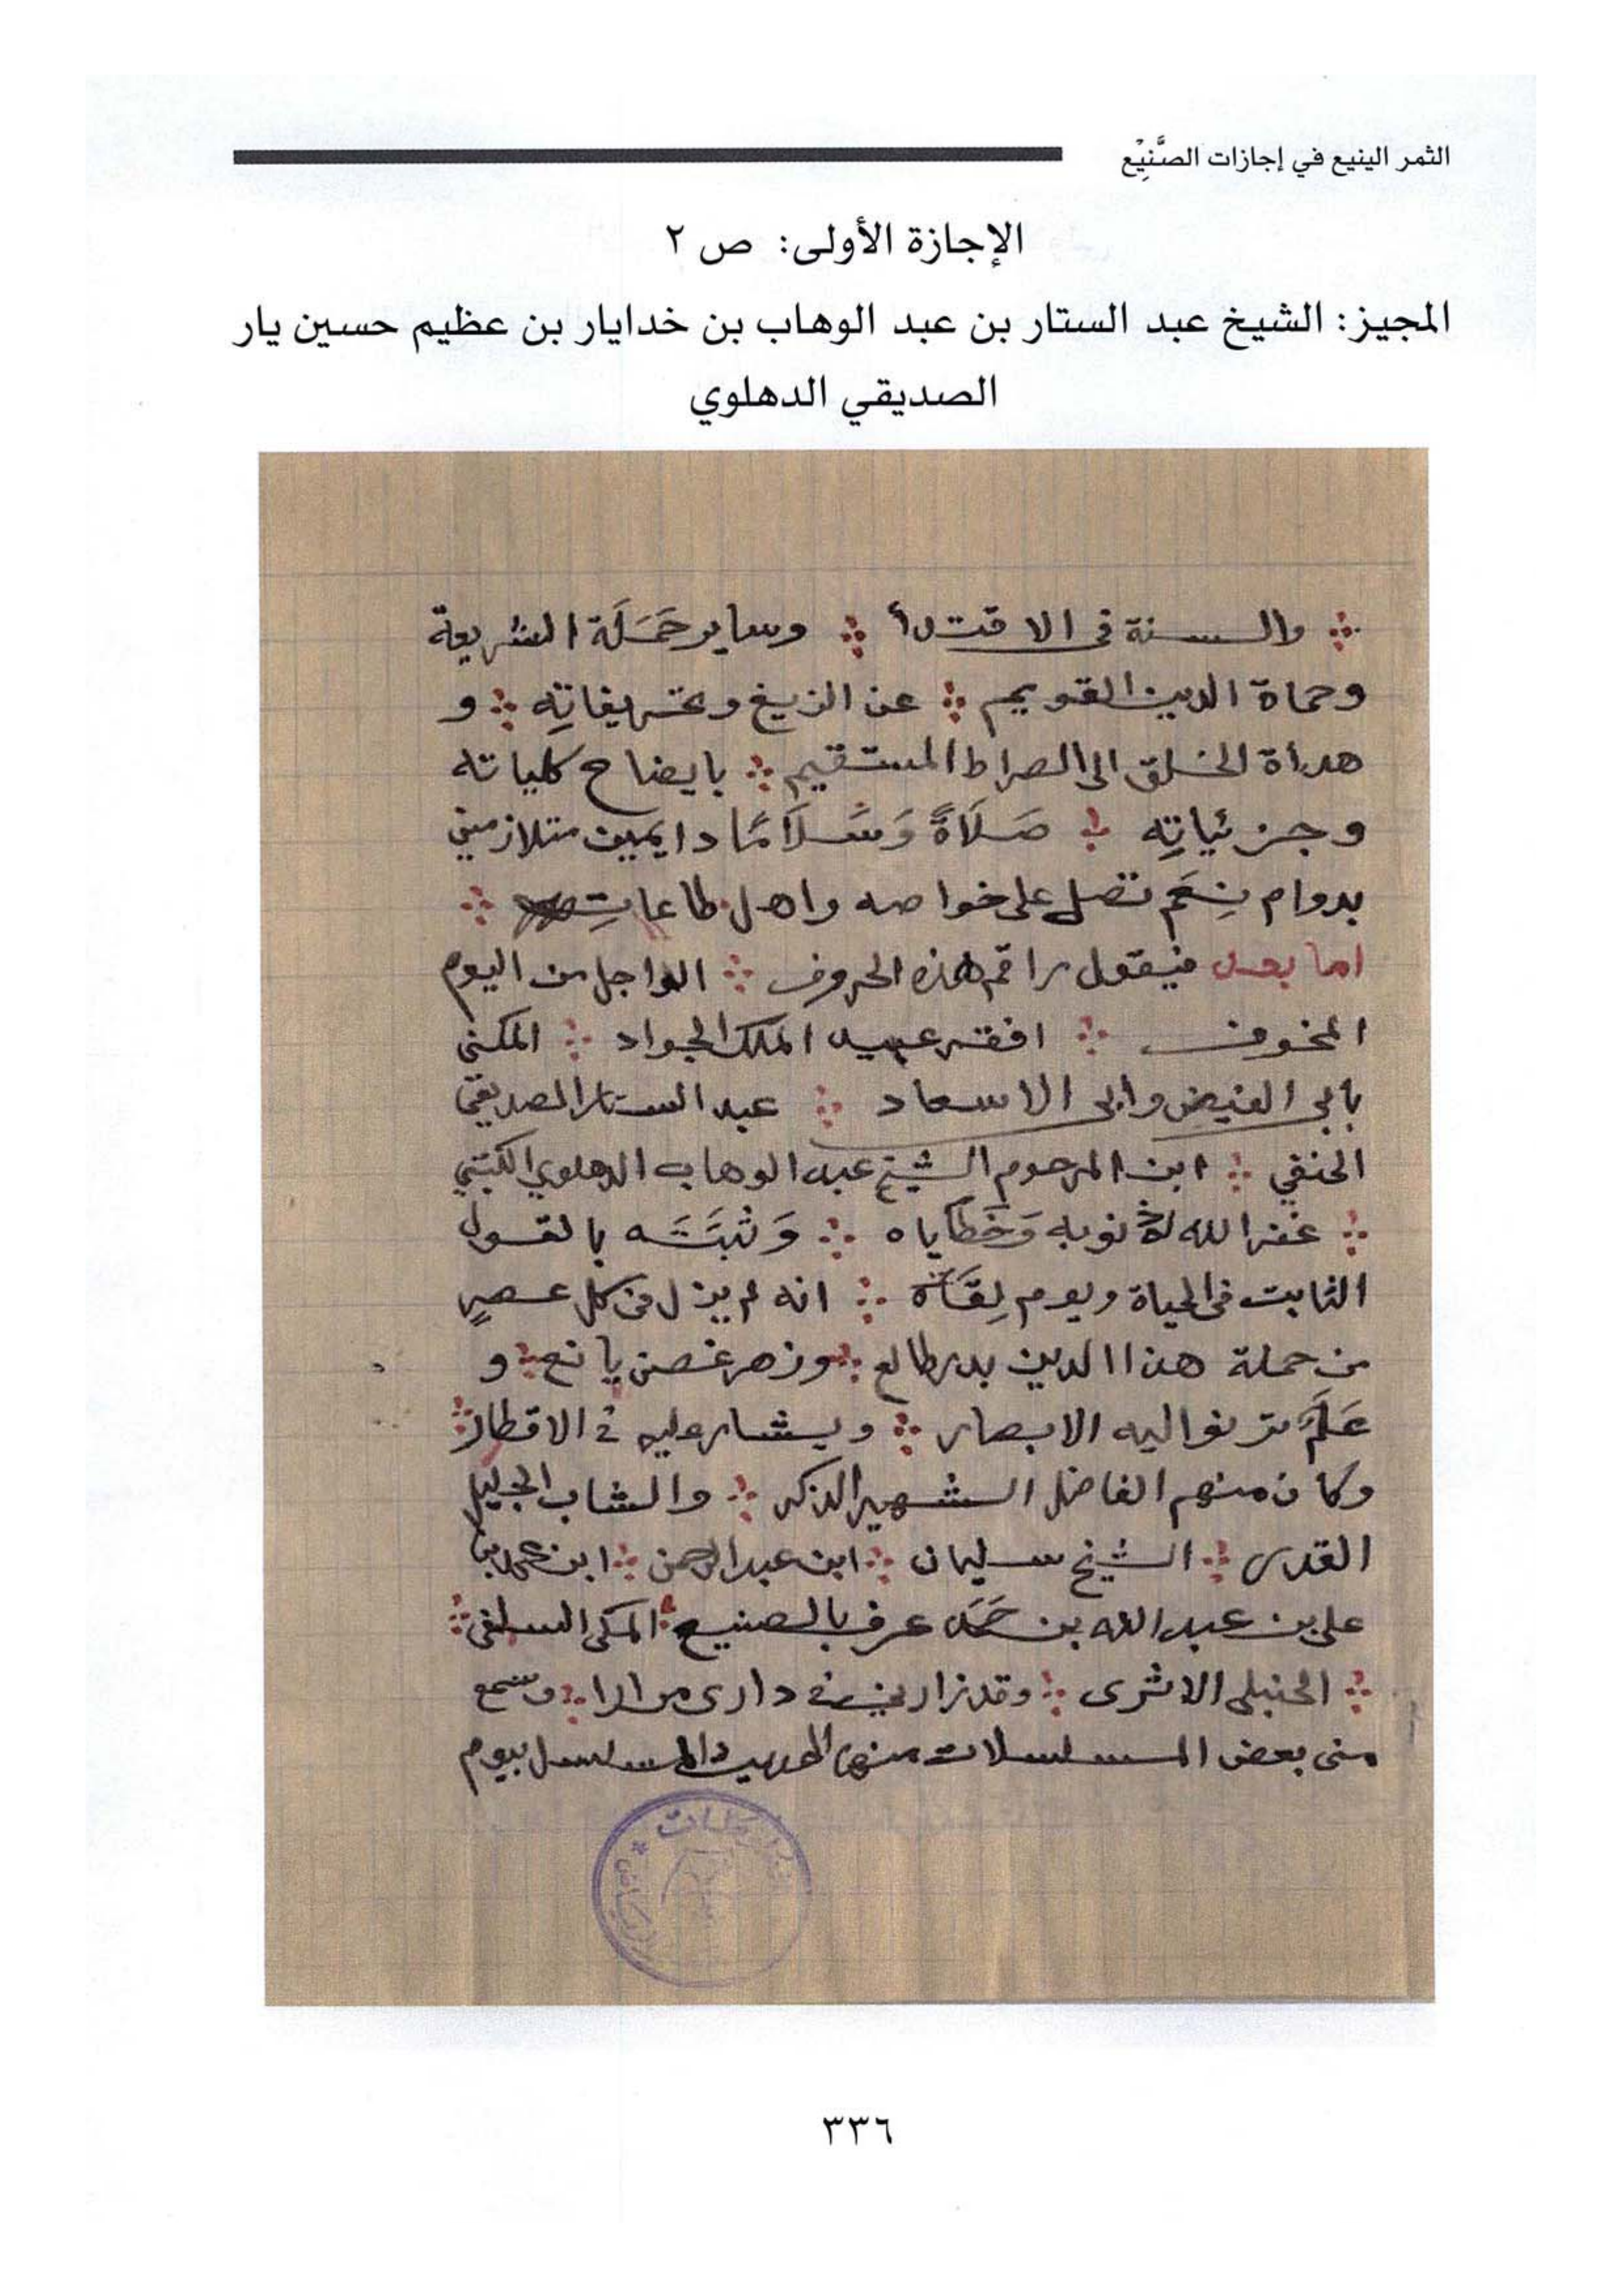 الثمر الينيع في إجازات الصَّنِيْع
الإجازة الأولى: ص ٢
المجيز: الشيخ عبد الستار بن عبد الوهاب بن خدايار بن عظيم حسين يار
الصديقي الدهلوي
والسنة في الاقتدا وساير حَمَلَة الشريعة
وحماة الدين القويم عن الزيغ وتحريفاتِه و
هداة الخلق الى الصراط المستقيم بايضاح كلياته
وجزئياتِه صَلَاةً وَسَلَامًا دايمين متلازمين
بدوام نِعَم تصل على خواصه واهل طاعاتِه
اما بعد فيقول راقم هذه الحروف الواجل من اليوم
المخوف افقر عبيد الملك الجواد المكنى
بابي الفيض وابي الاسعاد عبد الستار الصديقي
الحنفي ابن المرحوم الشيخ عبد الوهاب الدهلوي الكتبي
غفر الله له ذنوبه وَخَطَاياه وَثَبَتَه بالقول
الثابت في الحياة ويوم لِقَاه انه لم يزل في كل عصرٍ
من حملة هذا الدين بدر طالع وزهر غصن يانع و
عَلَم ترنوا اليه الابصار ويشار عليه في الاقطار
وكان منهم الفاضل الشهير الذكر والشاب الجليل
القدر الشيخ سليمان ابن عبد الرحمن ابن محمد بن
علي بن عبد الله بن حَمَد عرف بالصنيع المكي السلفي
الحنبلي الاثري وقد زارني في داري مرارا وسمع
مني بعض المسلسلات منها الحديث المسلسل بيوم
٣٣٦